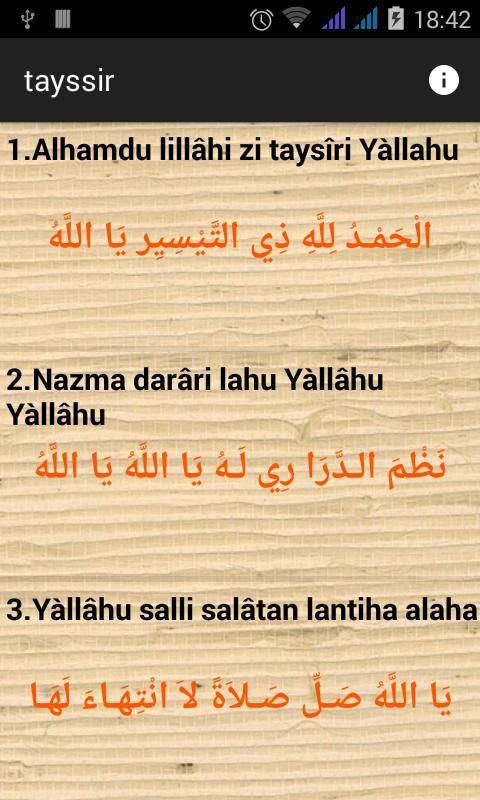 18:42
tayssir
1.Alhamdu lillâhi zi taysîri Yàllahu
الْحَمْـدُ لِلَّهِ ذِي التَّيْسِيِر يَا اللَّهُ
2.Nazma darâri lahu Yàllâhu
Yàllâhu
نَظْمَ الـدَّرَا رِي لَـهُ يَا اللَّهُ يَا اللَّهُ
3.Yàllâhu salli salâtan lantiha alaha
يَا اللَّهُ صَـلِّ صَـلاَةً لاَ انْتِهَـاءَ لَهَـا